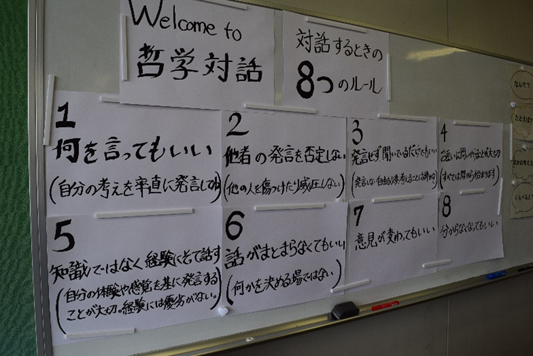 Welcome to
哲学対話
対話するときの
8つのルール
1
何を言ってもいい
(自分の考えを率直に発言してね)
2
他者の発言を否定しない
(他の人を傷つけたり威圧しない)
3
発言せず聞いているだけでもいい
4
お互いに問いかけることが大切
5
知識ではなく経験にそって話す
(自分の体験や感覚を基に発言する
ことが大切。経験には優劣がない。)
6
話がまとまらなくてもいい
(何かを決める場ではない)
7
意見が変わってもいい
8
分からなくなってもいい
なんで?
たとえば?